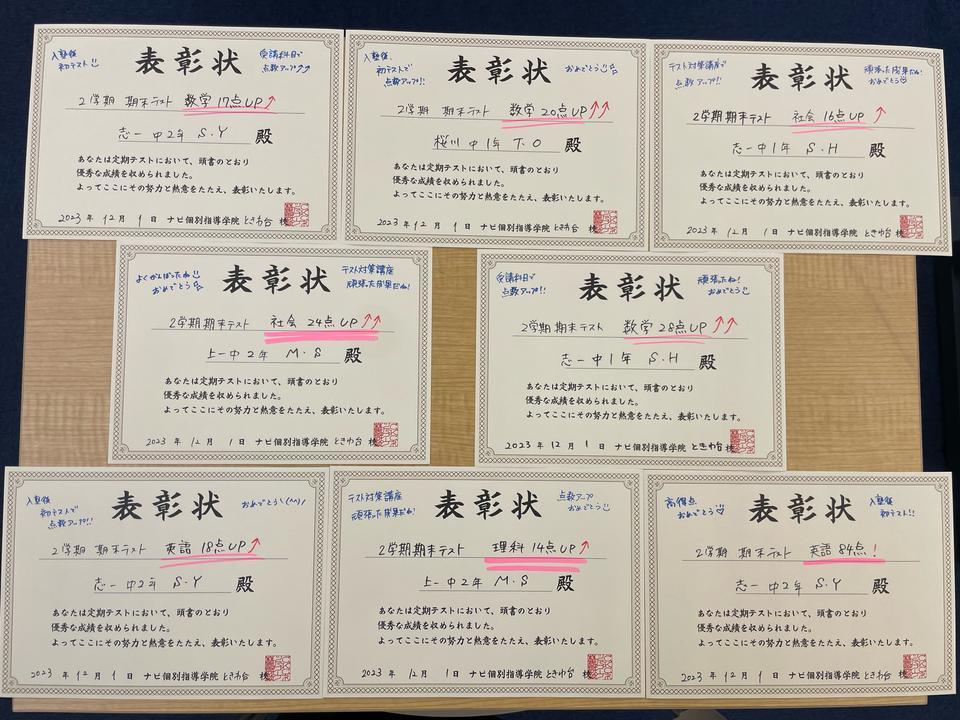 入塾後
初テスト!!
表彰状
受講科目で
点数アップ↑↑
2学期 期末テスト 数学 17点UP↑
志一中2年 S.Y 殿
あなたは定期テストにおいて、頭書のとおり
優秀な成績を収められました。
よってここにその努力と熱意をたたえ、表彰いたします。
2023年 12月 1日 ナビ個別指導学院 ときわ台 校
入塾後
初テストで
点数アップ!!
表彰状
おめでとう
2学期 期末テスト 数学 20点UP↑↑
桜川中1年 T.O 殿
あなたは定期テストにおいて、頭書のとおり
優秀な成績を収められました。
よってここにその努力と熱意をたたえ、表彰いたします。
2023年 12月 1日 ナビ個別指導学院 ときわ台 校
テスト対策講座で
点数アップ!!
表彰状
頑張った成果だね!
おめでとう
2学期期末テスト 社会 16点UP↑
志一中1年 S.H 殿
あなたは定期テストにおいて、頭書のとおり
優秀な成績を収められました。
よってここにその努力と熱意をたたえ、表彰いたします。
2023年 12月 1日 ナビ個別指導学院 ときわ台 校
よくがんばったね
おめでとう
表彰状
テスト対策講座
頑張った成果だね!
2学期期末テスト 社会 24点UP↑↑
上一中2年 M.S 殿
あなたは定期テストにおいて、頭書のとおり
優秀な成績を収められました。
よってここにその努力と熱意をたたえ、表彰いたします。
2023年 12月 1日 ナビ個別指導学院 ときわ台 校
受講科目で
点数アップ!!
表彰状
頑張ったね!
おめでとう
2学期期末テスト 数学 28点UP↑↑
志一中1年 S.H 殿
あなたは定期テストにおいて、頭書のとおり
優秀な成績を収められました。
よってここにその努力と熱意をたたえ、表彰いたします。
2023年 12月 1日 ナビ個別指導学院 ときわ台 校
入塾後
初テストで
点数アップ!!
表彰状
おめでとう\(^^)/
2学期 期末テスト 英語 18点UP↑
志一中2年 S.Y 殿
あなたは定期テストにおいて、頭書のとおり
優秀な成績を収められました。
よってここにその努力と熱意をたたえ、表彰いたします。
2023年 12月 1日 ナビ個別指導学院 ときわ台 校
テスト対策講座
頑張った成果だね!
表彰状
点数アップ
おめでとう
2学期期末テスト 理科 14点UP↑
上一中2年 M.S 殿
あなたは定期テストにおいて、頭書のとおり
優秀な成績を収められました。
よってここにその努力と熱意をたたえ、表彰いたします。
2023年 12月 1日 ナビ個別指導学院 ときわ台 校
高得点
おめでとう
表彰状
入塾後
初テスト!!
2学期 期末テスト 英語 84点!
志一中2年 S.Y 殿
あなたは定期テストにおいて、頭書のとおり
優秀な成績を収められました。
よってここにその努力と熱意をたたえ、表彰いたします。
2023年 12月 1日 ナビ個別指導学院 ときわ台 校